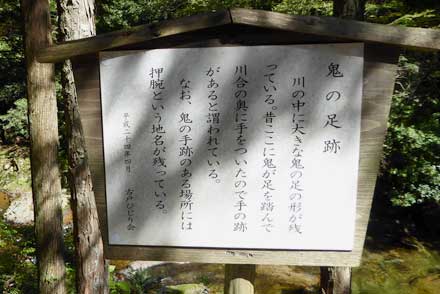 鬼の足跡
川の中に大きな鬼の足の形が残
っている。昔ここに鬼が足を踏んで
川合の奥に手をついたので手の跡
があると謂われている。
なお、鬼の手跡のある場所には
押腕という地名が残っている。
平成二十四年四月
古戸ひじり会